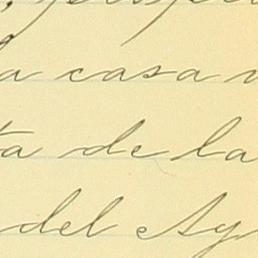 a casa
ta de la
del Ay